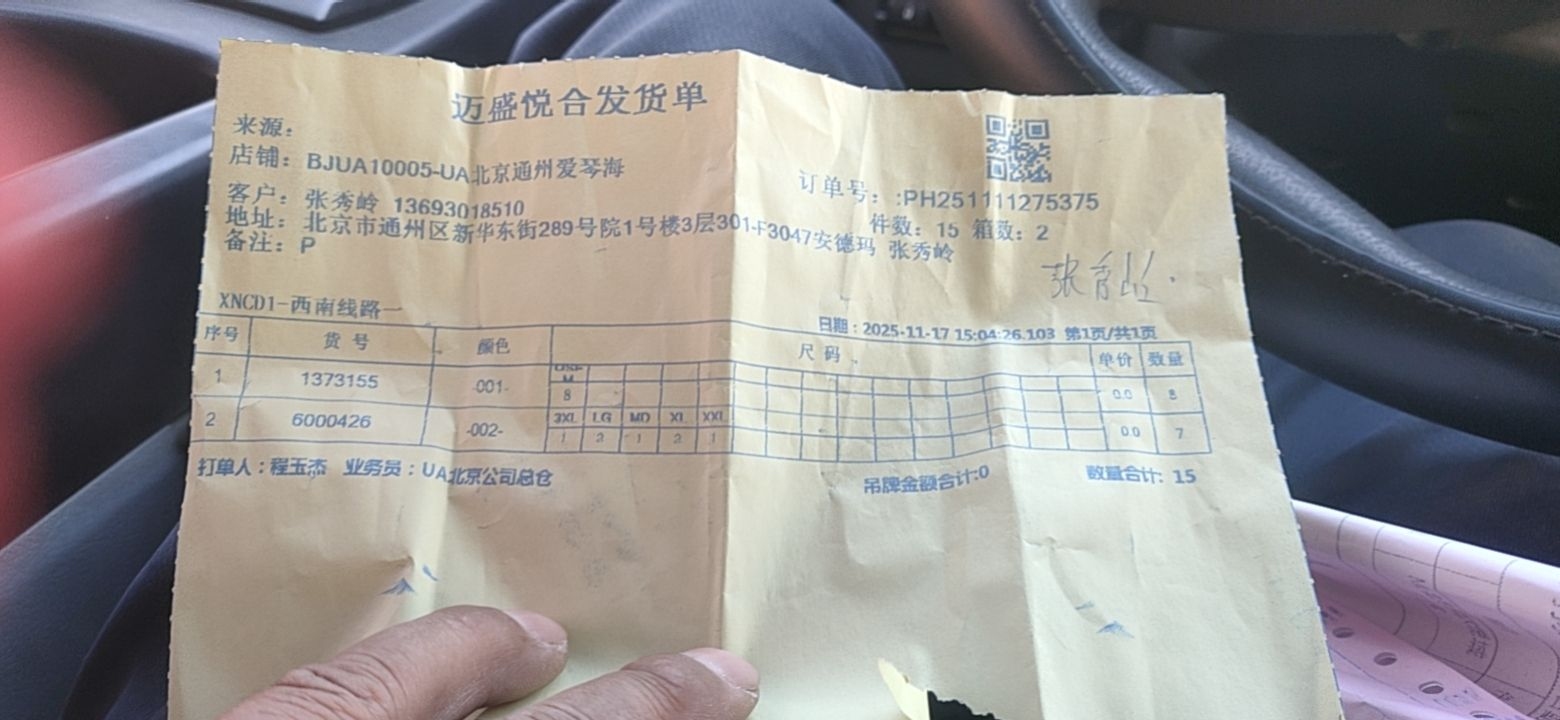 迈盛悦合发货单
来源:
店铺: BJUA10005-UA北京通州爱琴海
订单号: :PH251111275375
客户: 张秀岭 13693018510
件数: 15 箱数: 2
地址: 北京市通州区新华东街289号院1号楼3层301-F3047安德玛 张秀岭
备注: P
张秀岭
XNCD1-西南线路一
日期：2025-11-17 15:04:26.103 第1页/共1页
序号 货号 颜色 尺码 单价 数量
1 1373155 -001- M 0.0 8
8
2 6000426 -002- 3XL LG MD XL XXL 0.0 7
1 2 1 2 1
打单人：程玉杰 业务员：UA北京公司总仓 吊牌金额合计:0 数量合计: 15